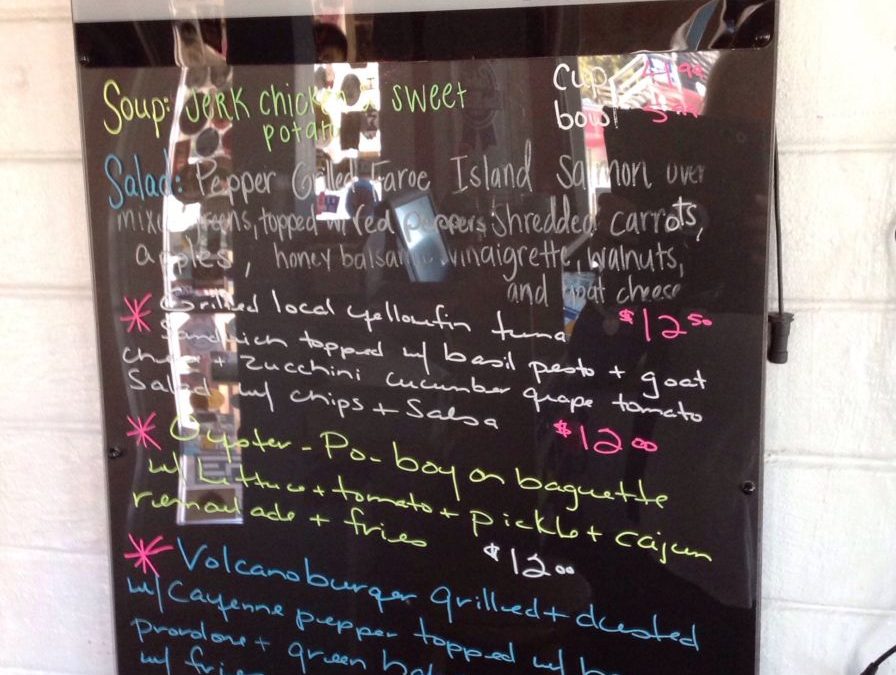 Soup: Jerk chicken & sweet cup 4.99
potato bowl
Salad: Pepper Grilled Faroe Island Salmon over
mixed greens, topped w/ red peppers, shredded carrots,
apples, honey balsamic vinaigrette, walnuts,
and goat cheese
* Grilled local yellowfin tuna $12.50
Sandwich topped w/ basil pesto + goat
chees + zucchini cucumber grape tomato
Salad w/ chips + Salsa
* Oyster - Po- boy on baguette $12.00
w/ Lettuce + tomato + pickle + cajun
remoulade + fries
* Volcano burger grilled + dusted $12.00
w/ Cayenne pepper topped w/
provolone + green
w/ fries